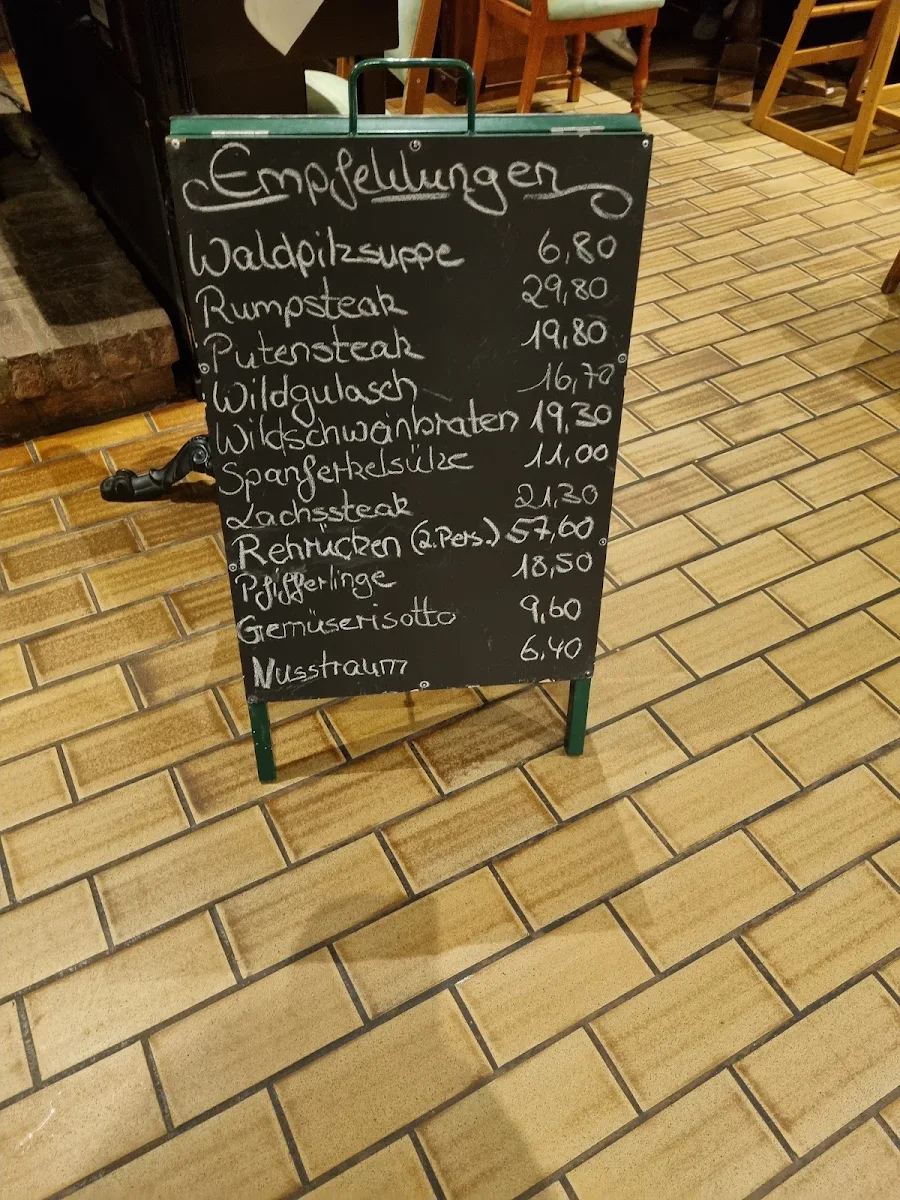 Empfehlungen
Waldpilzsuppe 6,80
Rumpsteak 29,80
Putensteak 19,80
Wildgulasch 16,70
Wildschweinbraten 19,30
Spanferkelsülze 11,00
Lachssteak 21,30
Rehrücken (2.Pers.) 57,60
Pfifferlinge 18,50
Gemüserisotto 9,60
Nusstraum 6,40